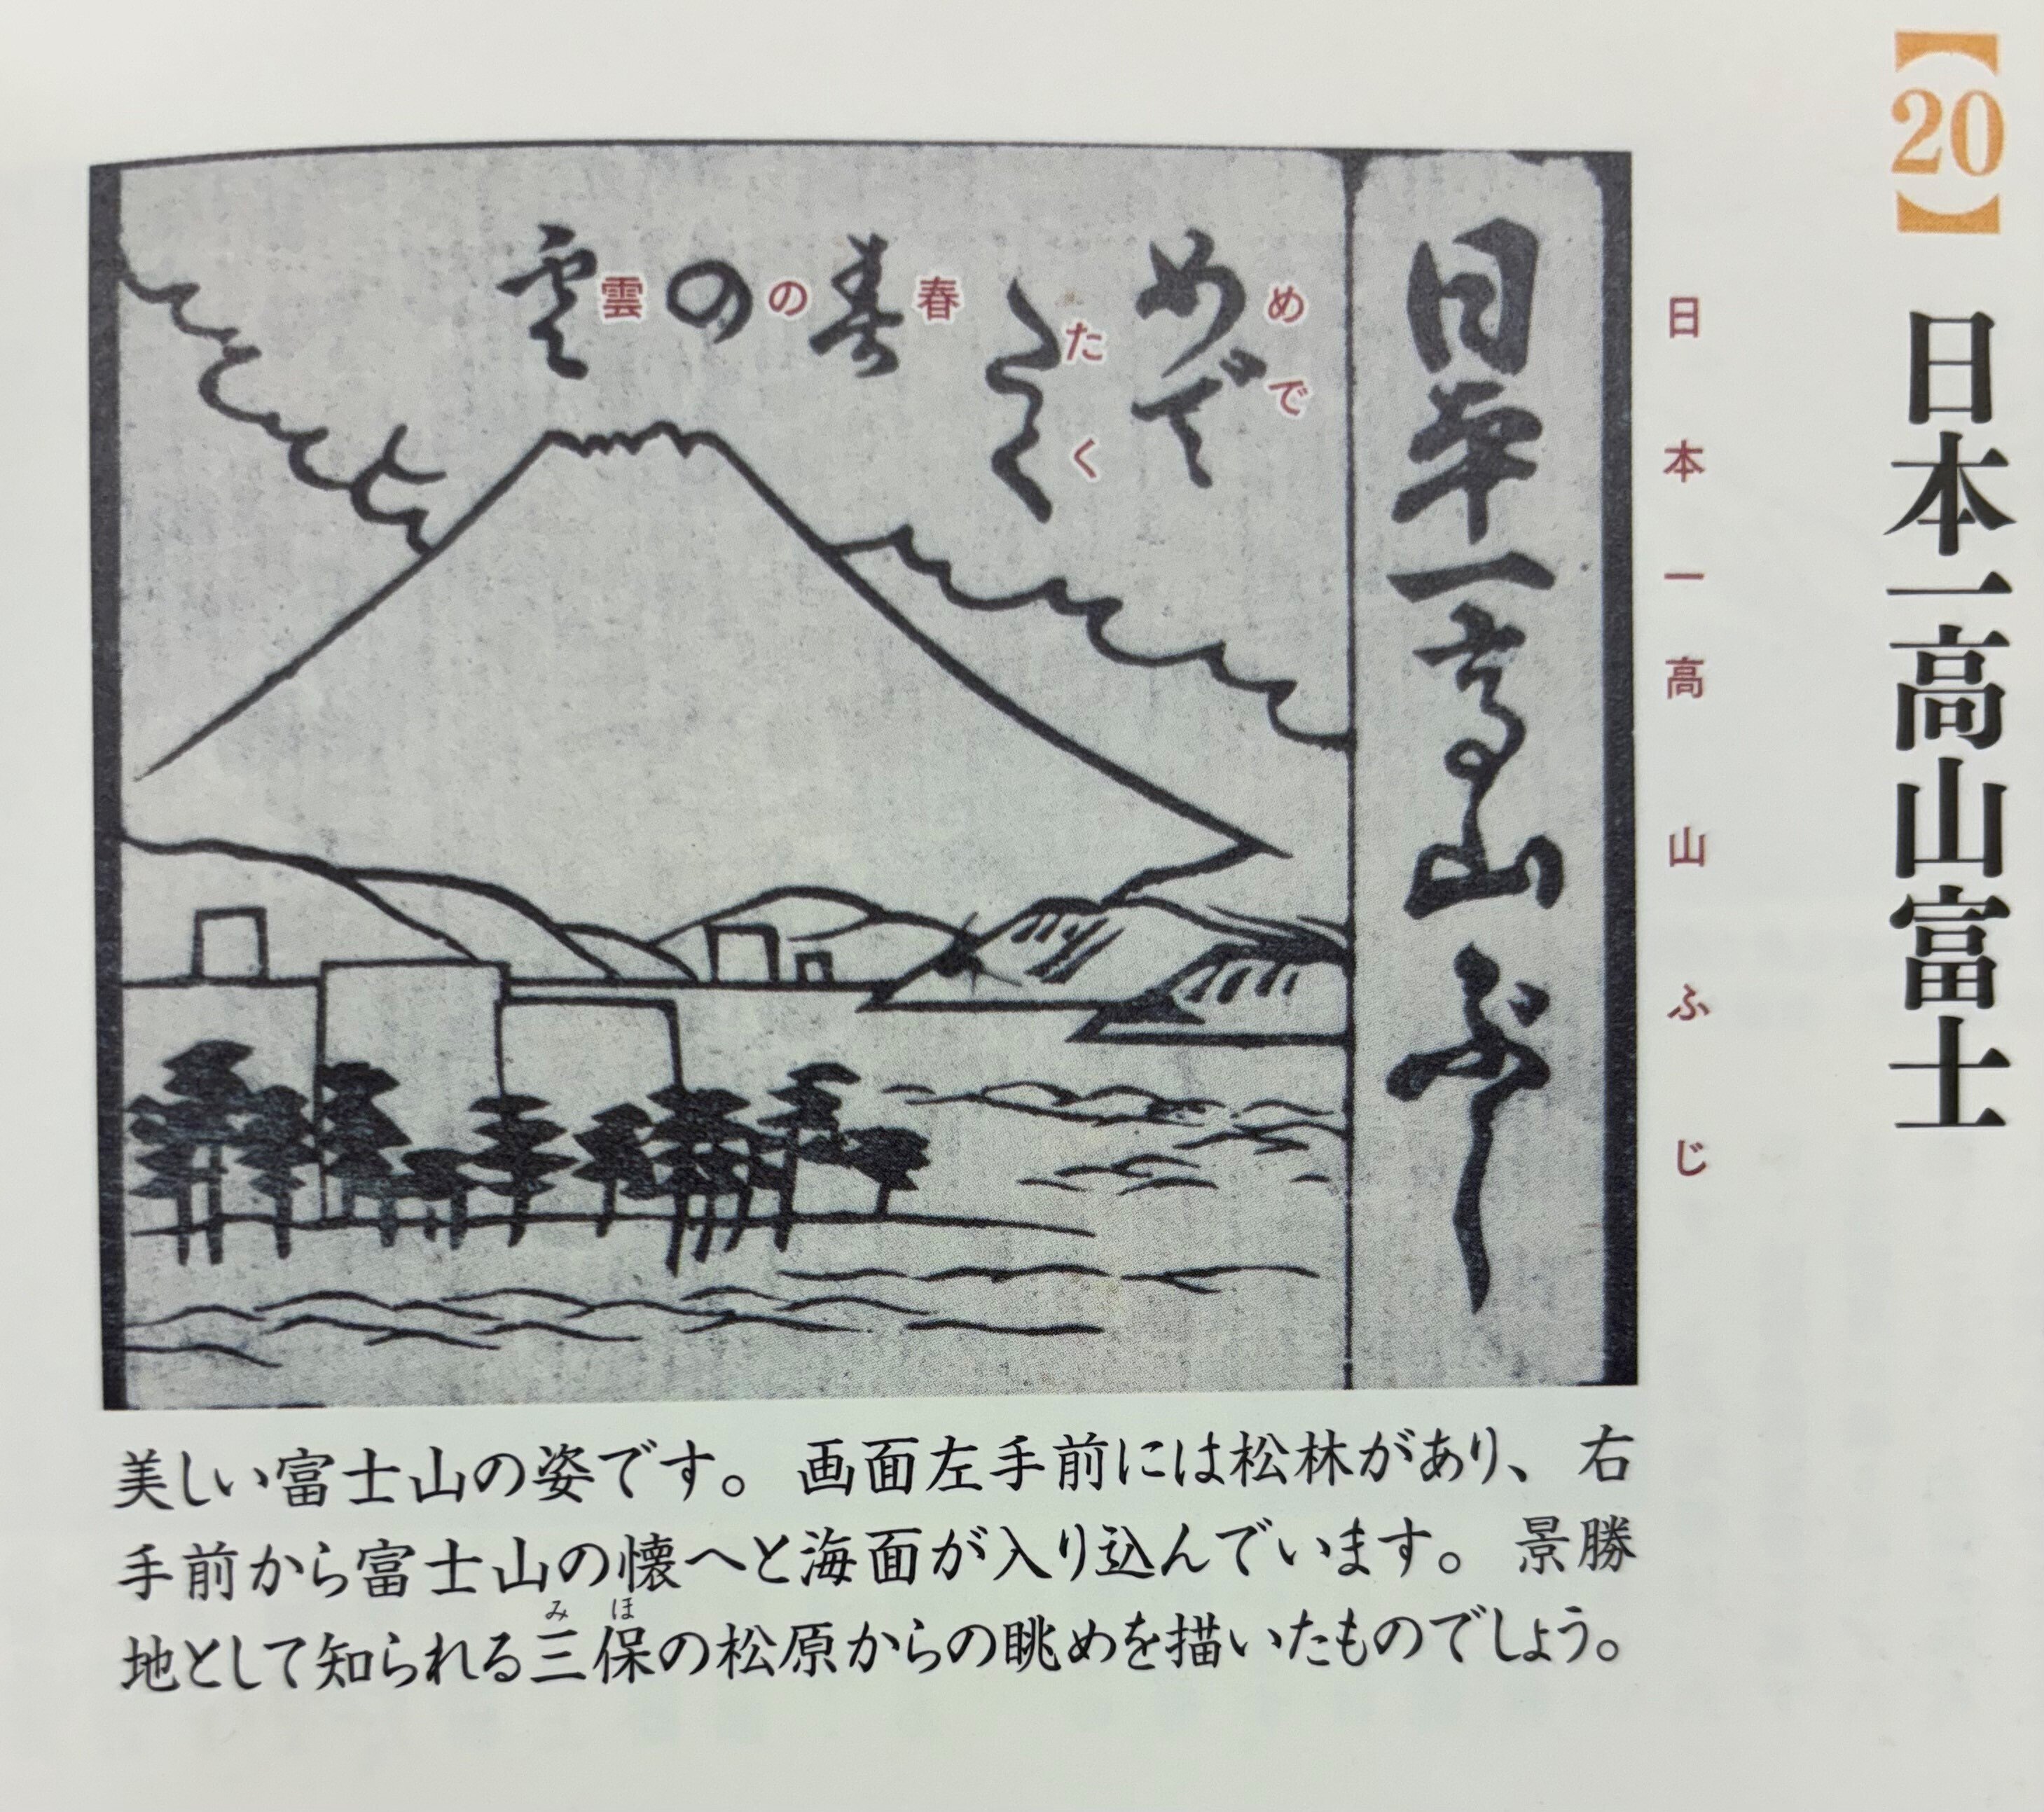 【20】日本一高山富士
日本一高山ふじ
日本一高山ふじ
めで
たく
春
の
雲
めで
たく
春
の
雲
美しい富士山の姿です。画面左手前には松林があり、右
手前から富士山の懐へと海面が入り込んでいます。景勝
地として知られる三保の松原からの眺めを描いたものでしょう。
みほ